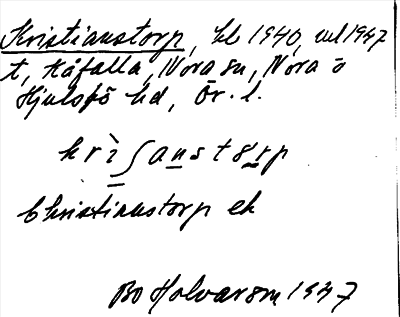 Kristianstorp, hl 1940, uel 1947
t, Kåfalla, Nora sn, Nora o
Hjulsjö hd, Ör. l.
krìʃanstɤrp
Christianstorp ek
Bo Holvarson 1947